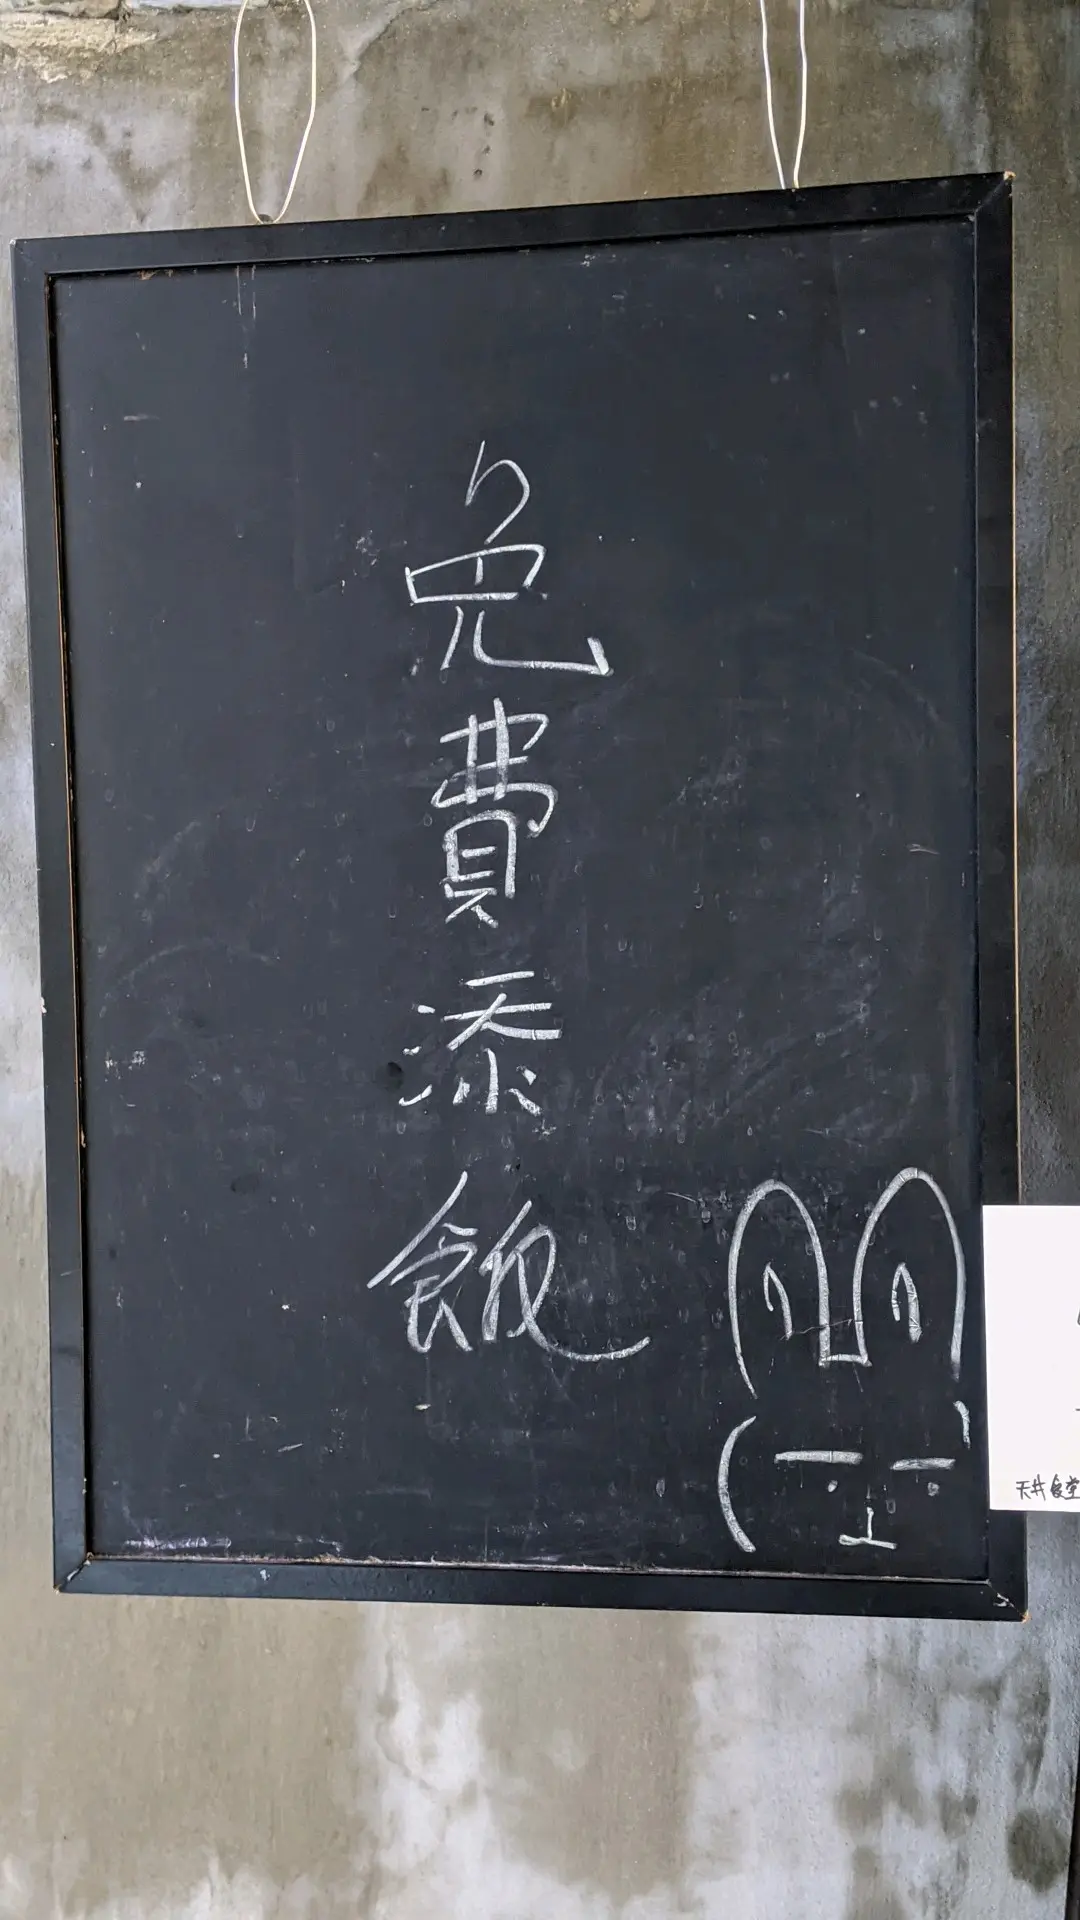 免費添飯
天井食堂